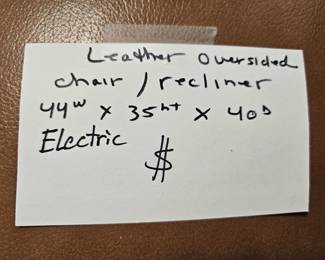 Leather Oversided
chair / recliner
44w x 35ht x 40D
Electric $